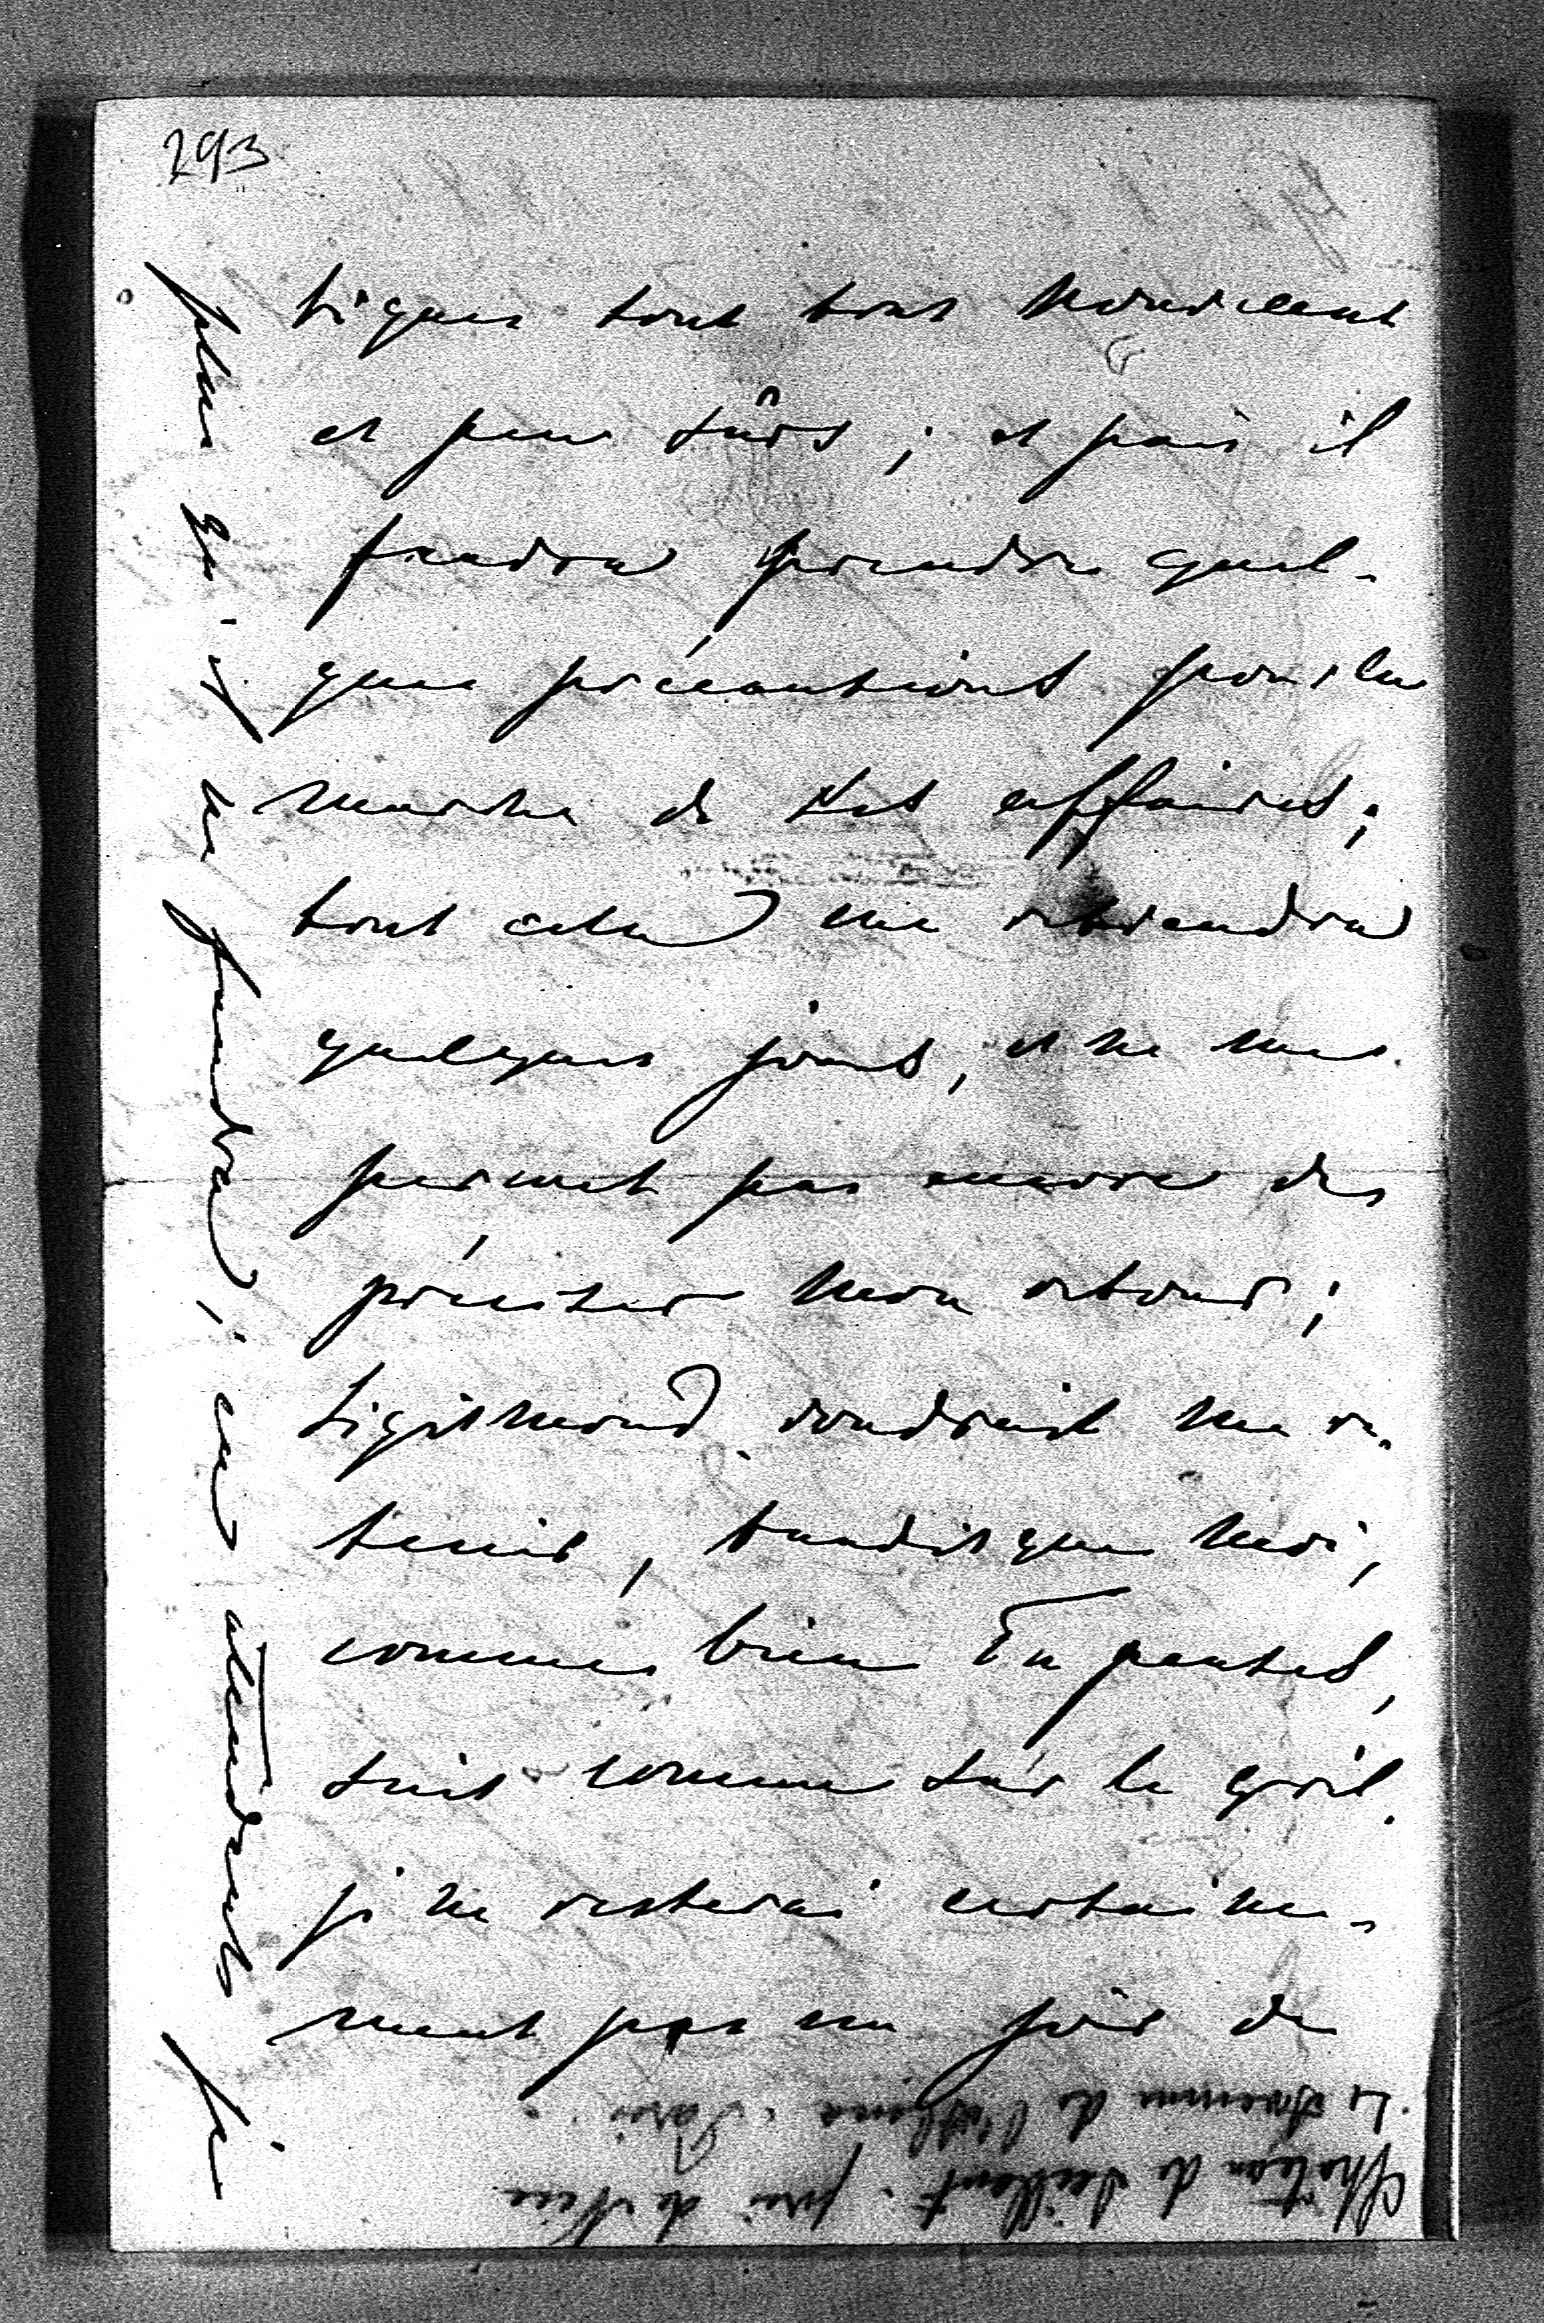 293
tiques sont tous nouveaux
et peu sûrs ; et puis il
faudra prendre quel-
ques précautions pour la
marche de ses affaires ;
tout cela me retiendra
quelques jours, et ne me
permet pas encore de
préciser mon retour ;
Sigismond voudrait me re-
tenir, tandis que moi,
comme bien tu penses,
suis comme sur le gril.
je ne resterai certaine-
ment pas un jour de
plus qu'il ne faudra ; en attendant je
Château de près de Nice
de Paris